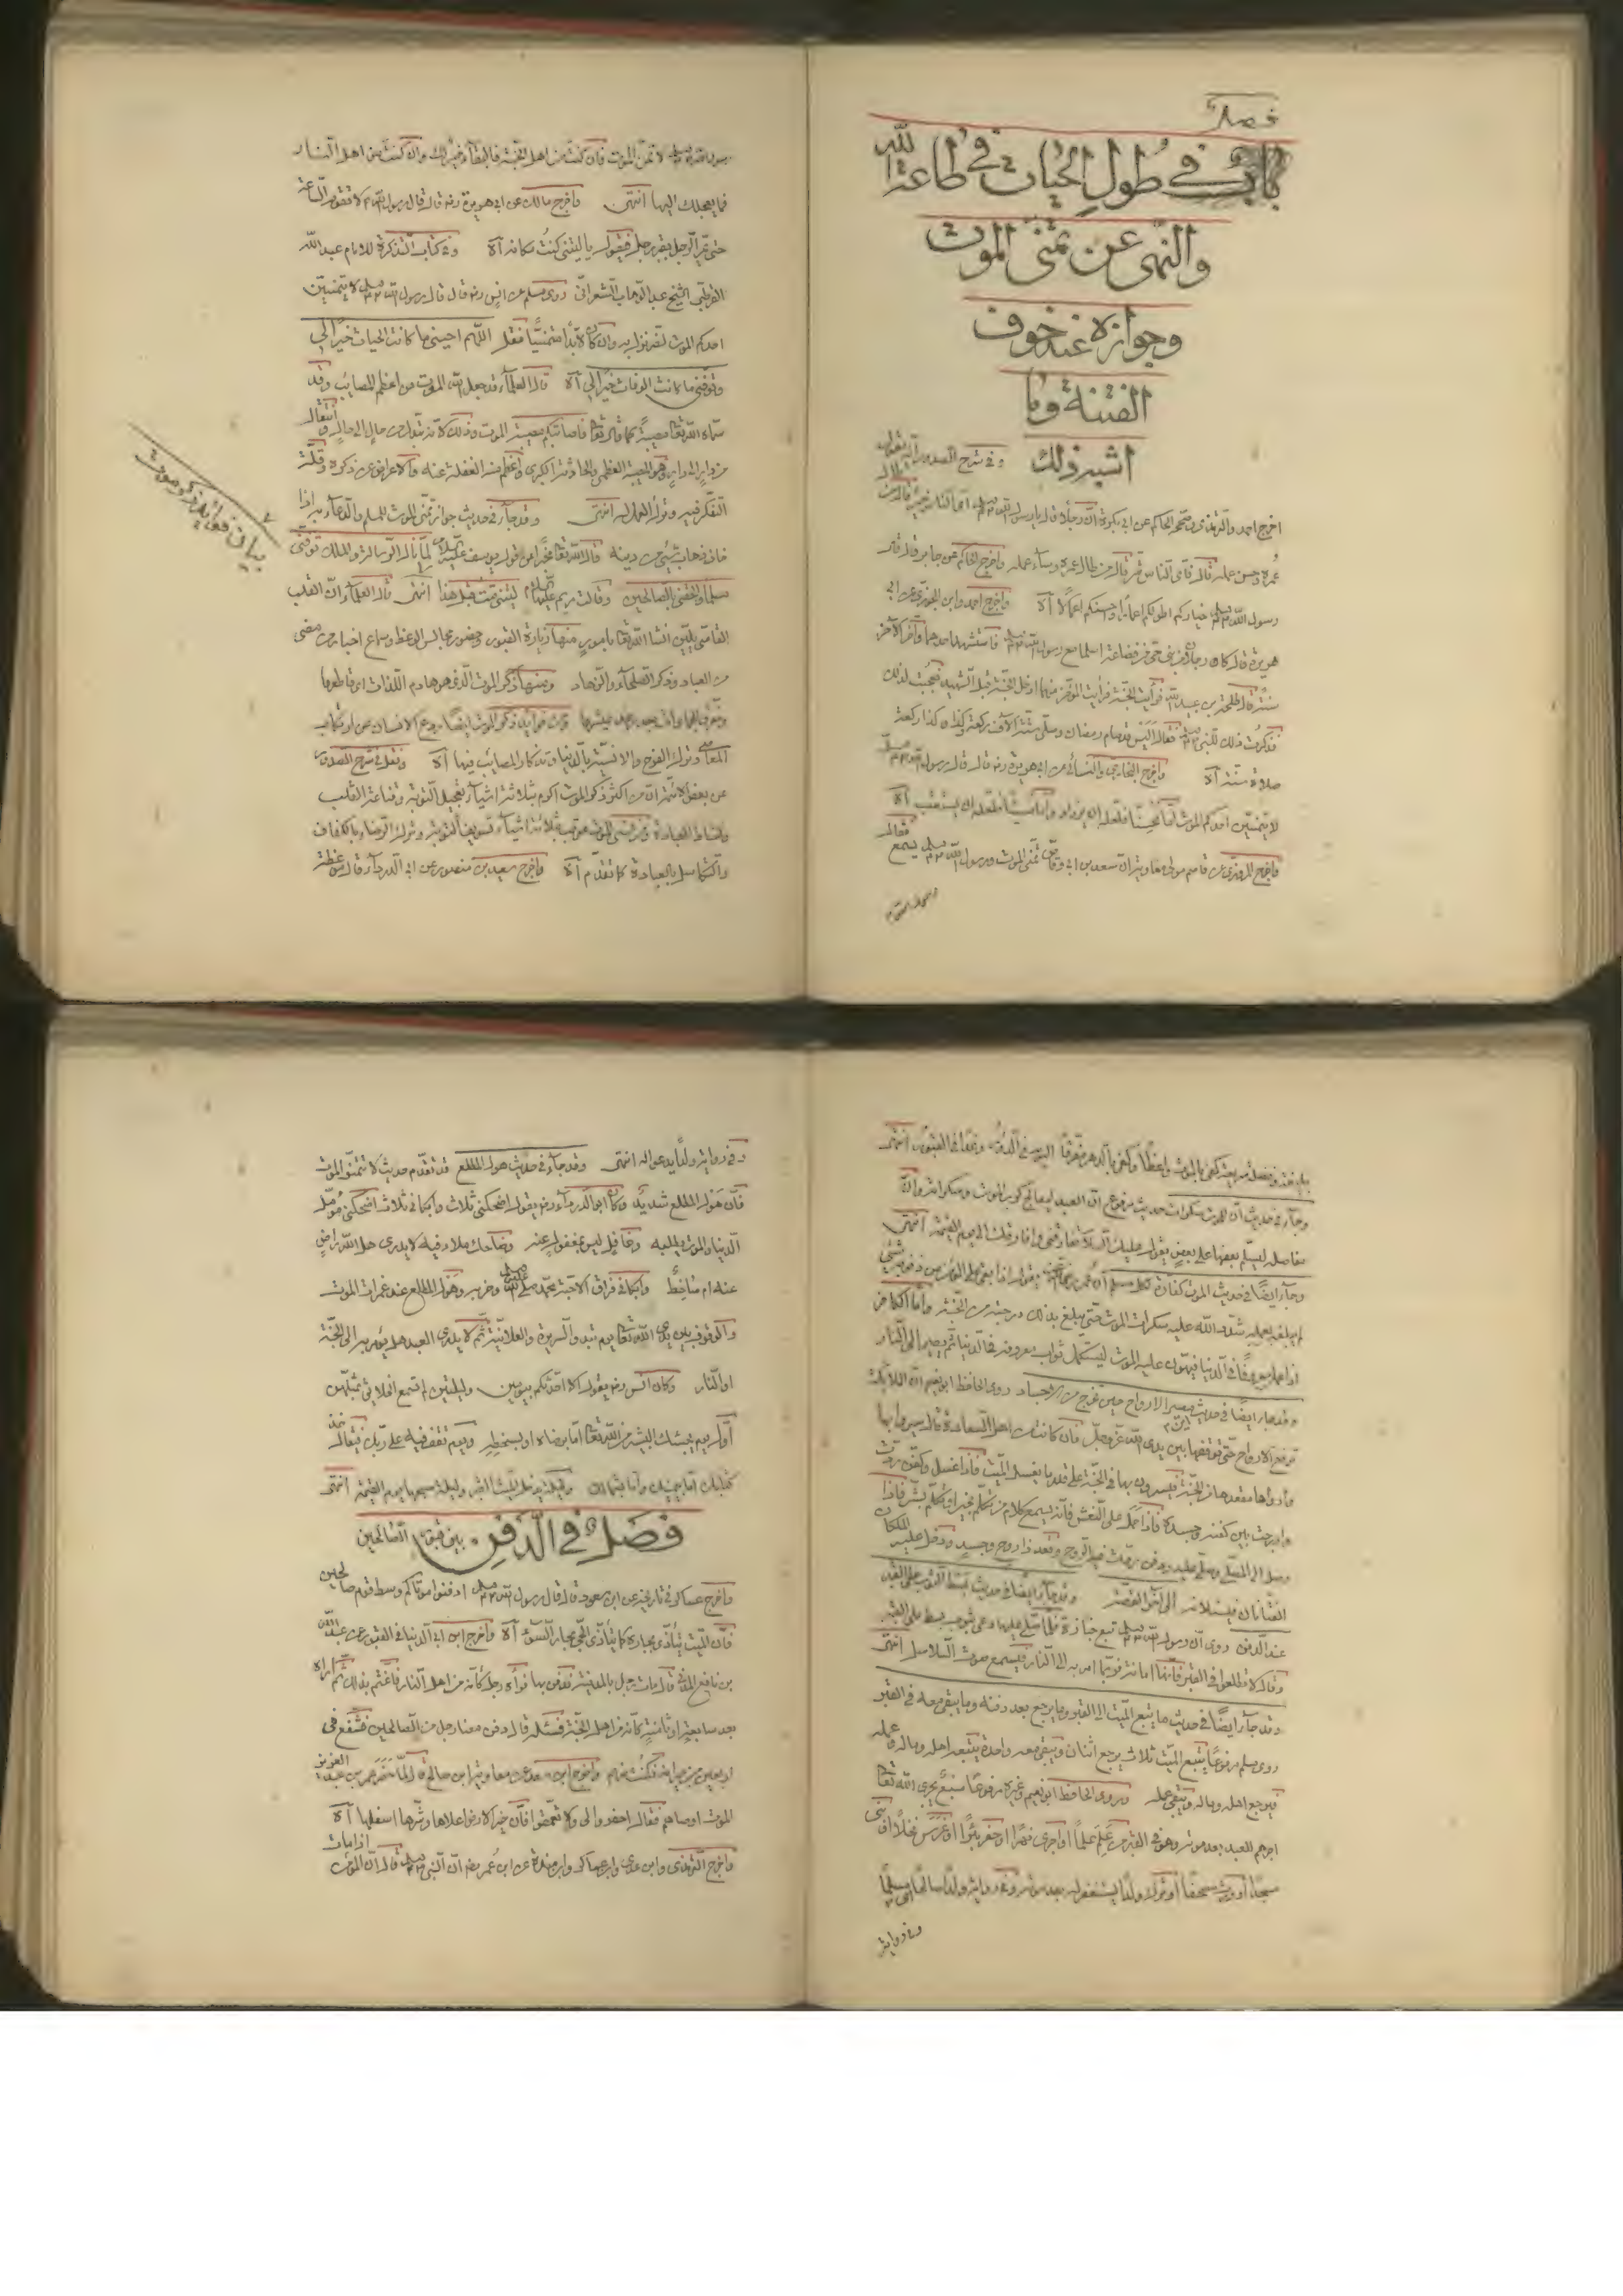 فصل
باب في طول الحيات في طاعة الله
والنهي عن تمني الموت
وجوازه عند خوف
الفتنة وما
اشبه ذلك وفي شرح الصدور
اخرج احمد والترمذي وصححه الحاكم عن ابي بكرة ان رجلا قال يا رسول الله اي الناس خير قال من طال
عمره وحسن عمله قال فاي الناس شر قال من طال عمره وساء عمله واخرج الحاكم عن جابر قال قال
رسول الله خياركم اطولكم اعمارا واحسنكم اعمالا اه واخرج احمد وابن عن ابي
هريرة قال كان رجلان من حي من قضاعة اسلما مع رسول الله فاستشهد احدهما واخر الاخر
سنة قال طلحة بن عبيد الله فرايت الجنة فرايت المؤخر منهما ادخل الجنة قبل الشهيد فعجبت لذلك
فذكرت ذلك للنبي فقال اليس قد صام رمضان وصلى ستة الاف ركعة وكذا كذا ركعة
صلاة سنة اه واخرج البخاري والنسائي عن ابي هريرة رض قال قال رسول الله
لا يتمنين احدكم الموت اما محسنا فلعله ان يزداد واما مسيئا فلعله ان يستعتب اه
واخرج المروزي عن قاسم مولى معاوية ان سعد بن ابي وقاص تمنى الموت ورسول الله يسمع فقال
رسول الله
رسول الله لا تمن الموت فان كنت من اهل الجنة فالبقاء خير لك وان كنت من اهل النار
فما يعجلك اليها انتهى واخرج مالك عن ابي هريرة رض قال قال رسول الله لا تقوم الساعة
حتى يمر الرجل بقبر رجل فيقول يا ليتني كنت مكانه اه وفي كتاب التذكرة للامام عبد الله
القرطبي الشيخ عبد الوهاب الشعراني روى مسلم عن انس رض قال قال رسول الله لا يتمنين
احدكم الموت لضر نزل به وان كان لا بد متمنيا فليقل اللهم احيني ما كانت الحيات خيرا لي
وتوفني ما كانت الوفات خيرا لي اه قال العلماء قد جعل الله الموت من اعظم المصائب وقد
سماه الله تعا مصيبة كما قال تعا فاصابتكم مصيبة الموت وذلك لانه تبدل من حال الى حال وانتقال
من دار الى دار وهو المصيبة العظمى والحادثة الكبرى واعظم منه الغفلة عنه والاعراض عن ذكره وقلة
التفكر فيه وترك العمل له انتهى وقد جاء في حديث جواز تمني الموت للمسلم والدعاء به اذا
خاف ذهاب شيء من دينه قال الله تعا مخبرا عن قول يوسف عليه السلام لما نال الرسالة والملك توفني
مسلما والحقني بالصالحين وقالت مريم عليها السلام ليتني مت قبل هذا انتهى قال العلماء ان القلب
القاسي يلين انشا الله تعا بامور منها زيارة القبور وحضور مجالس الوعظ وسماع اخبار من مضى
من العباد وذكر الصلحاء والزهاد ومنها ذكر الموت الذي هو هادم اللذات
المعاصي وترك الفرح والانس بالدنيا وتذكار المصائب فيها اه ونقل في شرح الصدور
عن بعض الائمة ان من اكثر ذكر الموت اكرم بثلاثة اشياء تعجيل التوبة وقناعة القلب
ونشاط العبادة ومن نسي الموت عوقب بثلاثة اشياء تسويف التوبة وترك الرضاء بالكفاف
والتكاسل بالعبادة كما تقدم اه واخرج سعيد بن منصور عن ابي الدرداء قال موعظة
بيان فوائد ذكر موت
بليغة وغفلة سريعة كفى بالموت واعظا وكفى بالدهر مفرقا اليوم في الدور وغدا في القبور انتهى
وجاء في حديث ان للموت سكرات حديث مرفوع ان العبد ليعالج كرب الموت وسكراته وان
مفاصله ليسلم بعضها على بعض يقول عليك السلام تفارقني وافارقك الى يوم القيمة انتهى
وجاء ايضا في حديث الموت كفارة لكل مسلم
لم يبلغه بعمله شدد الله عليه سكرات الموت حتى يبلغ بذلك درجته من الجنة واما الكافر
اذا عمل معروفا في الدنيا فيهون عليه الموت ليستكمل ثواب معروفه في الدنيا ثم يصير الى النار
وقد جاء ايضا في حديث مصير الارواح حين تخرج من الاجساد روى الحافظ ابو نعيم ان الملائكة
ترفع الارواح حتى توقفها بين يدي الله عز وجل فان كانت من اهل السعادة قال سيروا بها
واروها مقعدها من الجنة فيسيرون بها في الجنة على قدر ما يغسل الميت فاذا غسل وكفن ردت
وادرجت بين كفنه وجسده فاذا حمل على النعش فانه يسمع كلام من تكلم بخير او تكلم بشر فاذا
وصل الى المصلى وصلي عليه ودفن ردت فيه الروح وقعد ذا روح وجسد ودخل عليه الملكان
الفتانان فيسئلانه الى اخر القصة وقد جاء ايضا في حديث بسط الثوب على القبر
عند الدفن روي ان رسول الله تبع جنازة فلما صلى عليها دعى بثوب فبسط على القبر
وقال لا تطلعوا في القبر فانها امانة فربما امر به الى النار فيسمع صوت السلاسل انتهى
وقد جاء ايضا في حديث ما يتبع الميت الى القبر وما يرجع بعد دفنه وما يبقى معه في القبر
روى مسلم مرفوعا يتبع الميت ثلاث يرجع اثنان ويبقى معه واحدة يتبعه اهله وماله وعمله
فيرجع اهله وماله ويبقى عمله وروى الحافظ ابو نعيم وغيره مرفوعا سبع يجري الله تعا
اجرهم للعبد بعد موته وهو في القبر من علم علما او اجرى نهرا او حفر بئرا او غرس نخلا او بنى
مسجدا او ورث مصحفا او ترك ولدا يستغفر له بعد موته وفي رواية ولدا صالحا مسلما
وفي رواية
وفي رواية ولدا يدعو له انتهى وقد جاء في حديث هول المطلع قد تقدم حديث لا تتمنو الموت
فان هول المطلع شديد وكان ابو الدرداء رض يقول اضحكني ثلاث وابكاني ثلاث اضحكني مؤمل
الدنيا والموت يطلبه وغافل ليس بمغفول عنه وضاحك بملاء فيه لا يدري هل الله راض
عنه ام ساخط وابكاني فراق الاحبة محمد صلى الله وحزبه وهول المطلع عند غمرات الموت
والوقوف بين يدي الله تعا يوم تبدو السريرة والعلانية ثم لا يدري العبد هل يؤمر به الى الجنة
او النار وكان انس رض يقول الا احدثكم بيومين وليلتين لم تسمع الخلائق بمثلهن
اول يوم يجيئك البشير من الله تعا اما برضاه او بسخطه ويوم تقف فيه على ربك فيقال خذ
كتابك اما بيمينك واما بشمالك وليلة يدخل الميت القبر وليلة صبيحها يوم القيمة انتهى
فصل في الدفن بين قبور الصالحين
واخرج عساكر في تاريخه عن ابن مسعود قال قال رسول الله ادفنوا موتاكم وسط قوم صالحين
فان الميت يتأذى بجاره كما يتأذى الحي بجار السوء اه واخرج ابن ابي الدنيا في القبور عن عبد الله
بن نافع المدني قال مات رجل بالمدينة فدفن بها فرأه رجل كأنه من اهل النار فاغتم بذلك ثم اراه
بعد سابعة او ثامنة كانه من اهل الجنة فسئله قال دفن معنا رجل من الصالحين فشفع في
اربعين من جيرانه فكنت منهم واخرج ابن سعد عن معاوية ابن صالح قال لما حضر عمر بن عبد العزيز
الموت اوصاهم فقال احفروا لي ولا تعمقوا فان خير الارض اعلاها وشرها اسفلها اه
واخرج الترمذي وابن عدي وابن عساكر وابن مندة عن ابن عمر رض ان النبي قال ان المؤمن اذا مات